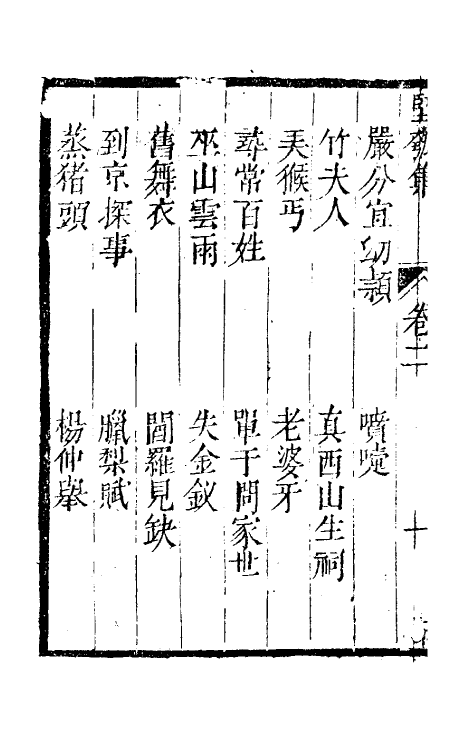 堅瓠集 卷十二 十
嚴分宜幼穎 噴嚏
竹夫人 真西山生祠
弄猴丐 老婆牙
尋常百姓 單于問家世
巫山雲雨 失金釵
舊舞衣 閻羅見缺
到京探事 臘梨賦
蒸猪頭 楊仲舉